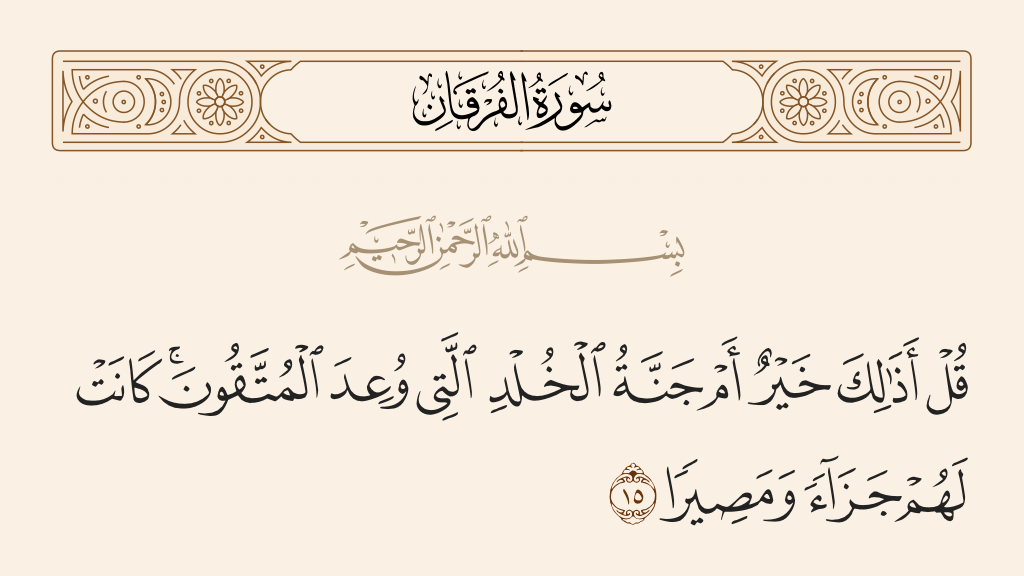 سُورَةُ الفُرْقَانِ
بِسْمِ ٱللَّهِ ٱلرَّحْمَٰنِ ٱلرَّحِيمِ
قُلْ أَذَٰلِكَ خَيْرٌ أَمْ جَنَّةُ ٱلْخُلْدِ ٱلَّتِى وُعِدَ ٱلْمُتَّقُونَ ۚ كَانَتْ
لَهُمْ جَزَآءً وَمَصِيرًا ١٥